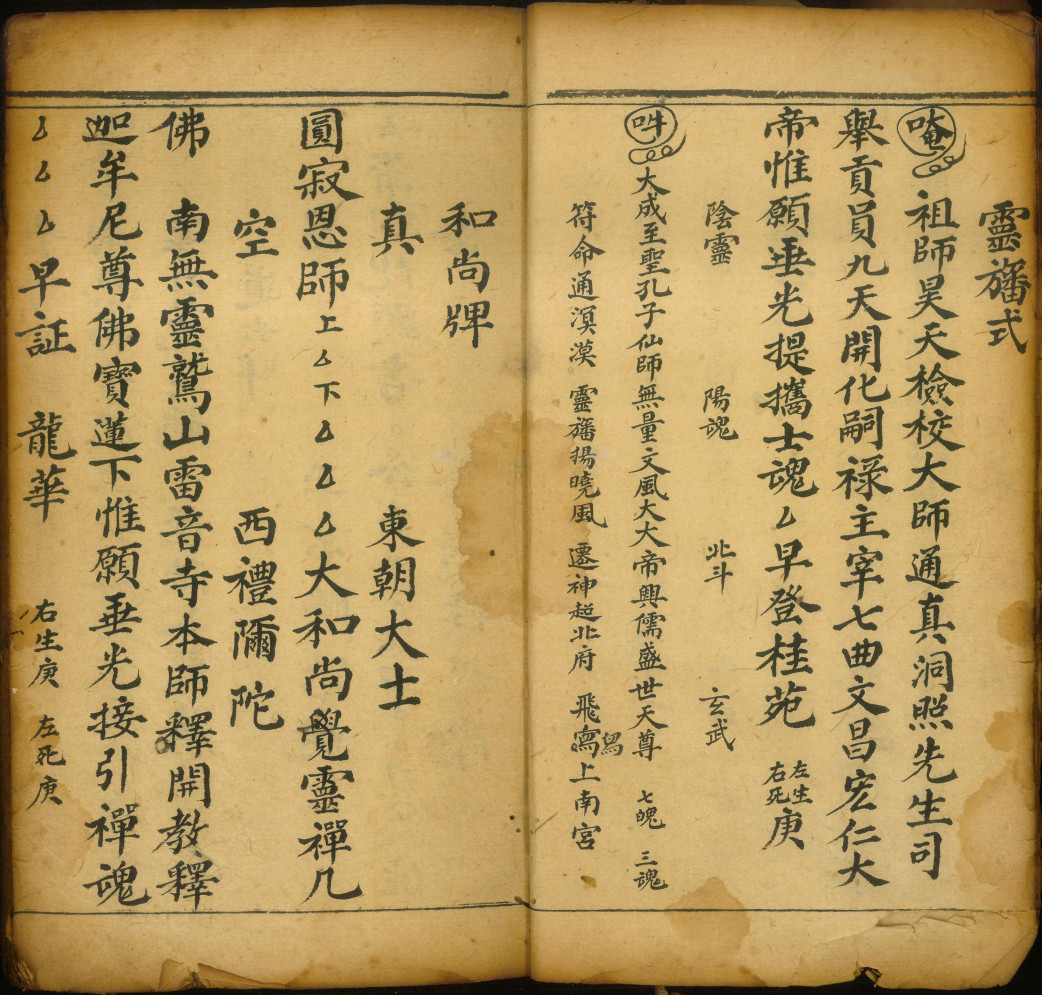 靈旛式
唵 祖師昊天檢校大師通真洞照先生司
舉貢員九天開化嗣祿主宰七曲文昌宏仁大
帝惟願垂光提攜士魂厶早登桂苑 左生右死庚
陰靈 陽魂 北斗 玄武
吽 大成至聖孔子仙師無量文風大大帝興儒盛世天尊 七魄 三魂
符命通溟漠 靈旛揚曉風 遷神超北府 飛寫上南宮
舄
和尚牌
真 東朝大士
圓寂恩師上厶下厶厶厶大和尚覺靈禪几
空 西禮彌陀
佛 南無靈鷲山雷音寺本師釋開教釋
迦牟尼尊佛寶蓮下惟願垂光接引禪魂
厶厶厶早証 龍華 右生庚 左死庚